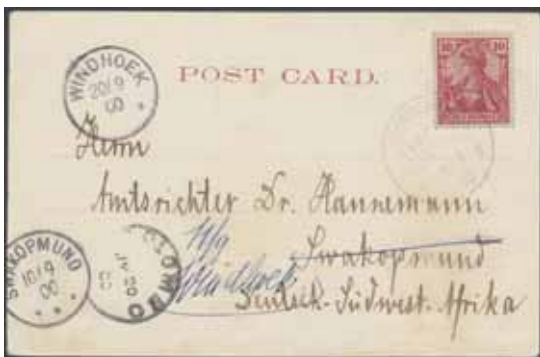 WINDHOEK
20/9
00
POST CARD.
10 10
Herrn
Amtsrichter Dr. Hannemann
Swakopmund
Windhoek
Deutsch-Südwest-Afrika
SWAKOPMUND
10/9
00
COLOMBO